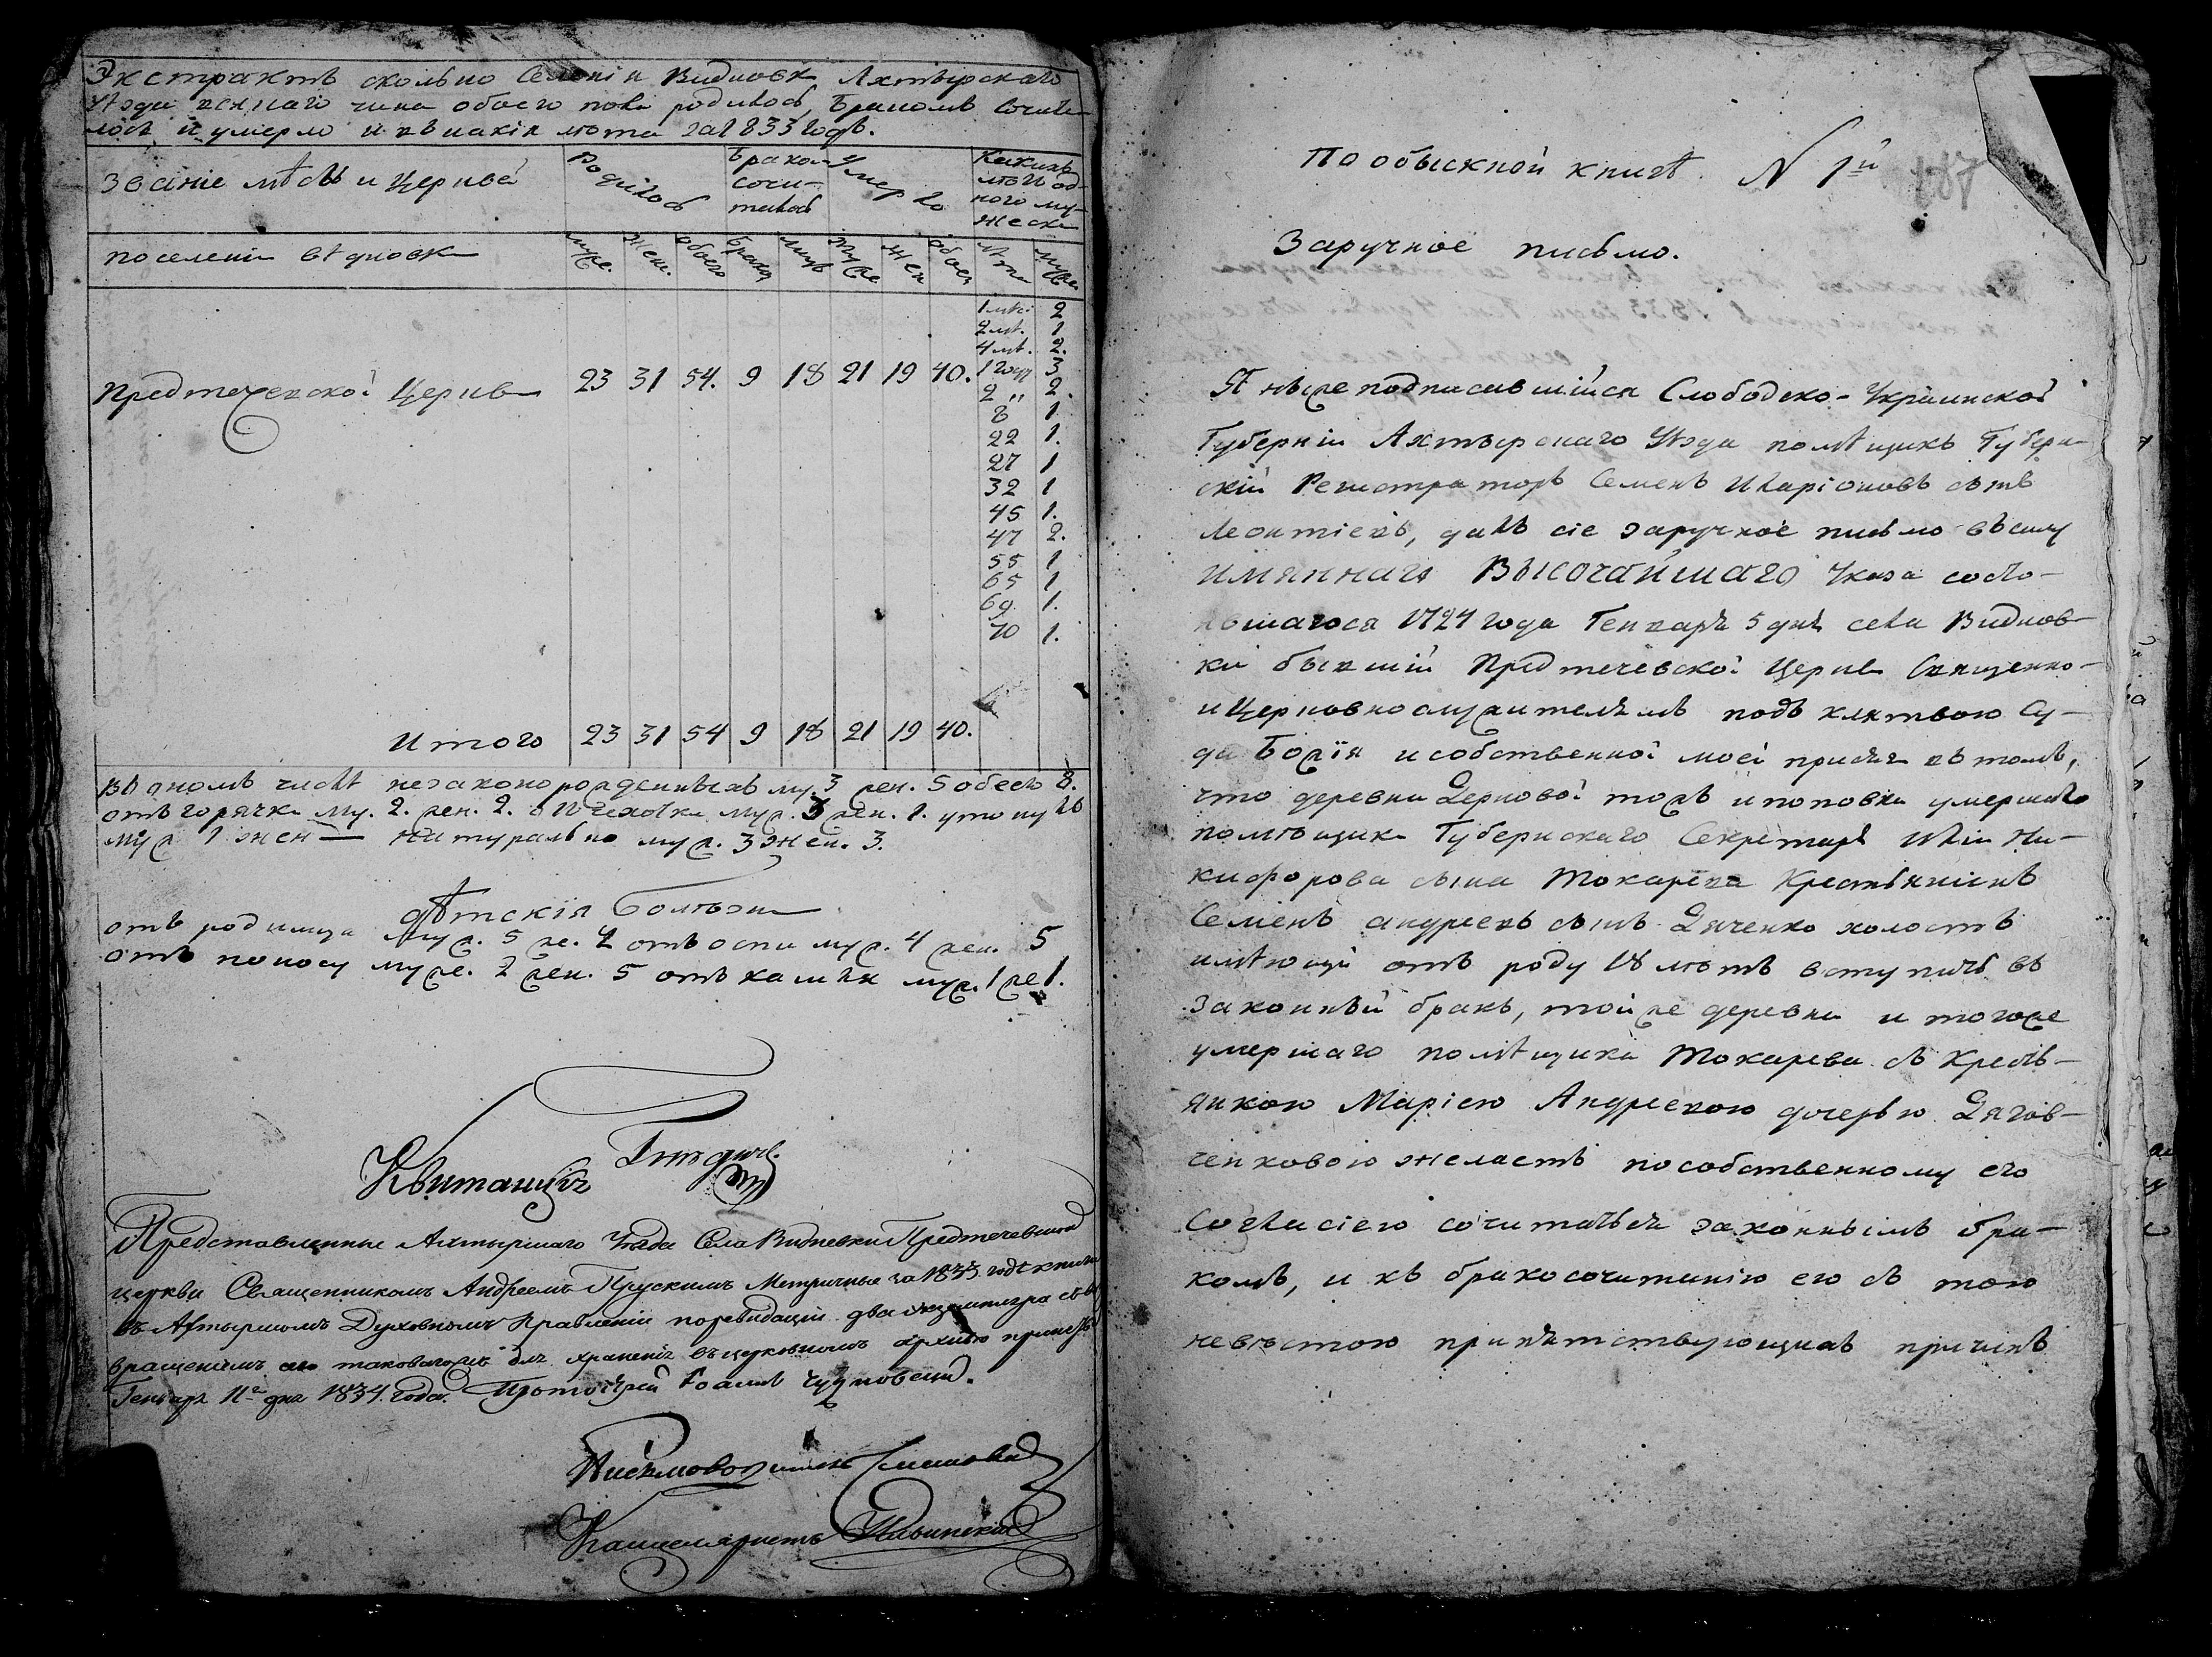 Экстрактъ сколько Селенiи Видновк Ахтырскаго
Уезда всякаго чина обоего пола родилось, Бракомъ сочита
лось и умерло и въ какiя лета за 1833 годъ.
Званiе мѣстъ и Церквей
Родилось
Бракомъ сочи-талось
Умерло
Какихъ летъ од-ного му-жеска
поселенiи Видновк
муже. Жен. обоего Браки лицъ Муже Жен обоего лѣта мужа
1 мѣс. 2
2 мѣ. 1
4 мѣ. 2.
Предтечевской Церкв 23 31 54. 9 18 21 19 40. 1 году 3
2 " 2.
8 1
22 1.
27 1
32 1
45 1.
47 2.
55 1
65 1
69. 1.
70 1.
Итого 23 31 54 9 18 21 19 40.
въ числѣ незаконорожденныхъ му. 3 жен. 5 обоего 8.
отъ горячки му. 2. жен. 2. муж. жен. 1. утонулъ
муж 1 жен — натурально муж. 3 жен. 3.
дѣтскiя болезн
отъ родимца муж. 5 же. 2 отъ оспи муж. 4 жен. 5
отъ поносу муже. 2 жен. 5 отъ кашля муж. 1 же 1.
Представленные Ахтырскаго Уезда Села Видневки Предтечевской
церкви Священникомъ Андреемъ Прускимъ Метричные за 1833 годъ книги
въ Ахтырскомъ Духовномъ Правленiи поревидации два экземпляра съ воз
вращенiемъ таковаго для храненiя въ церковномъ архиве
Генваря 11го дня 1834. года. Протоiерей Iоаннъ Чудновскiй.
Письмоводитель
Канцеляристъ
По обыскной книгѣ. N 1й 187
Заручное письмо.
Я ниже подписавшiйся Слободско-Украинской
Губернiи Ахтырскаго Уезда помѣщикъ Губерн-
скiй Регистраторъ Семенъ Иларiоновъ сынъ
Леонтiевъ, далъ сiе заручное письмо въ силу
Имяннаго ВЫСОЧАЙШАГО Указа состо-
явшагося 1724 года Генваря 5 дня села Виднов-
ки бывшiй Предтечевской Церкв Священно-
и Церковнослужителямъ подъ клятвою Су-
да Божiя и собственной моей присяги въ томъ,
что деревни Дерновой тожъ и поповки умершаго
помѣщика Губернскаго Секретаря Илiи Ни-
кифорова сына Токарева Крестьянинъ
Семенъ андреевъ сынъ Дяченко холостъ
имѣющiй отъ роду 18 летъ вступить въ
законный бракъ, той же деревни и тогоже
умершаго помѣщика Токарева съ Кресть-
янкою Марiею Андреевою дочерью Дягов-
ченковою желаетъ по собственному его
Согласiею сочитаться законнымъ бра-
комъ, и къ бракосочитанiю его съ тою
невестою препятствующихъ причинъ